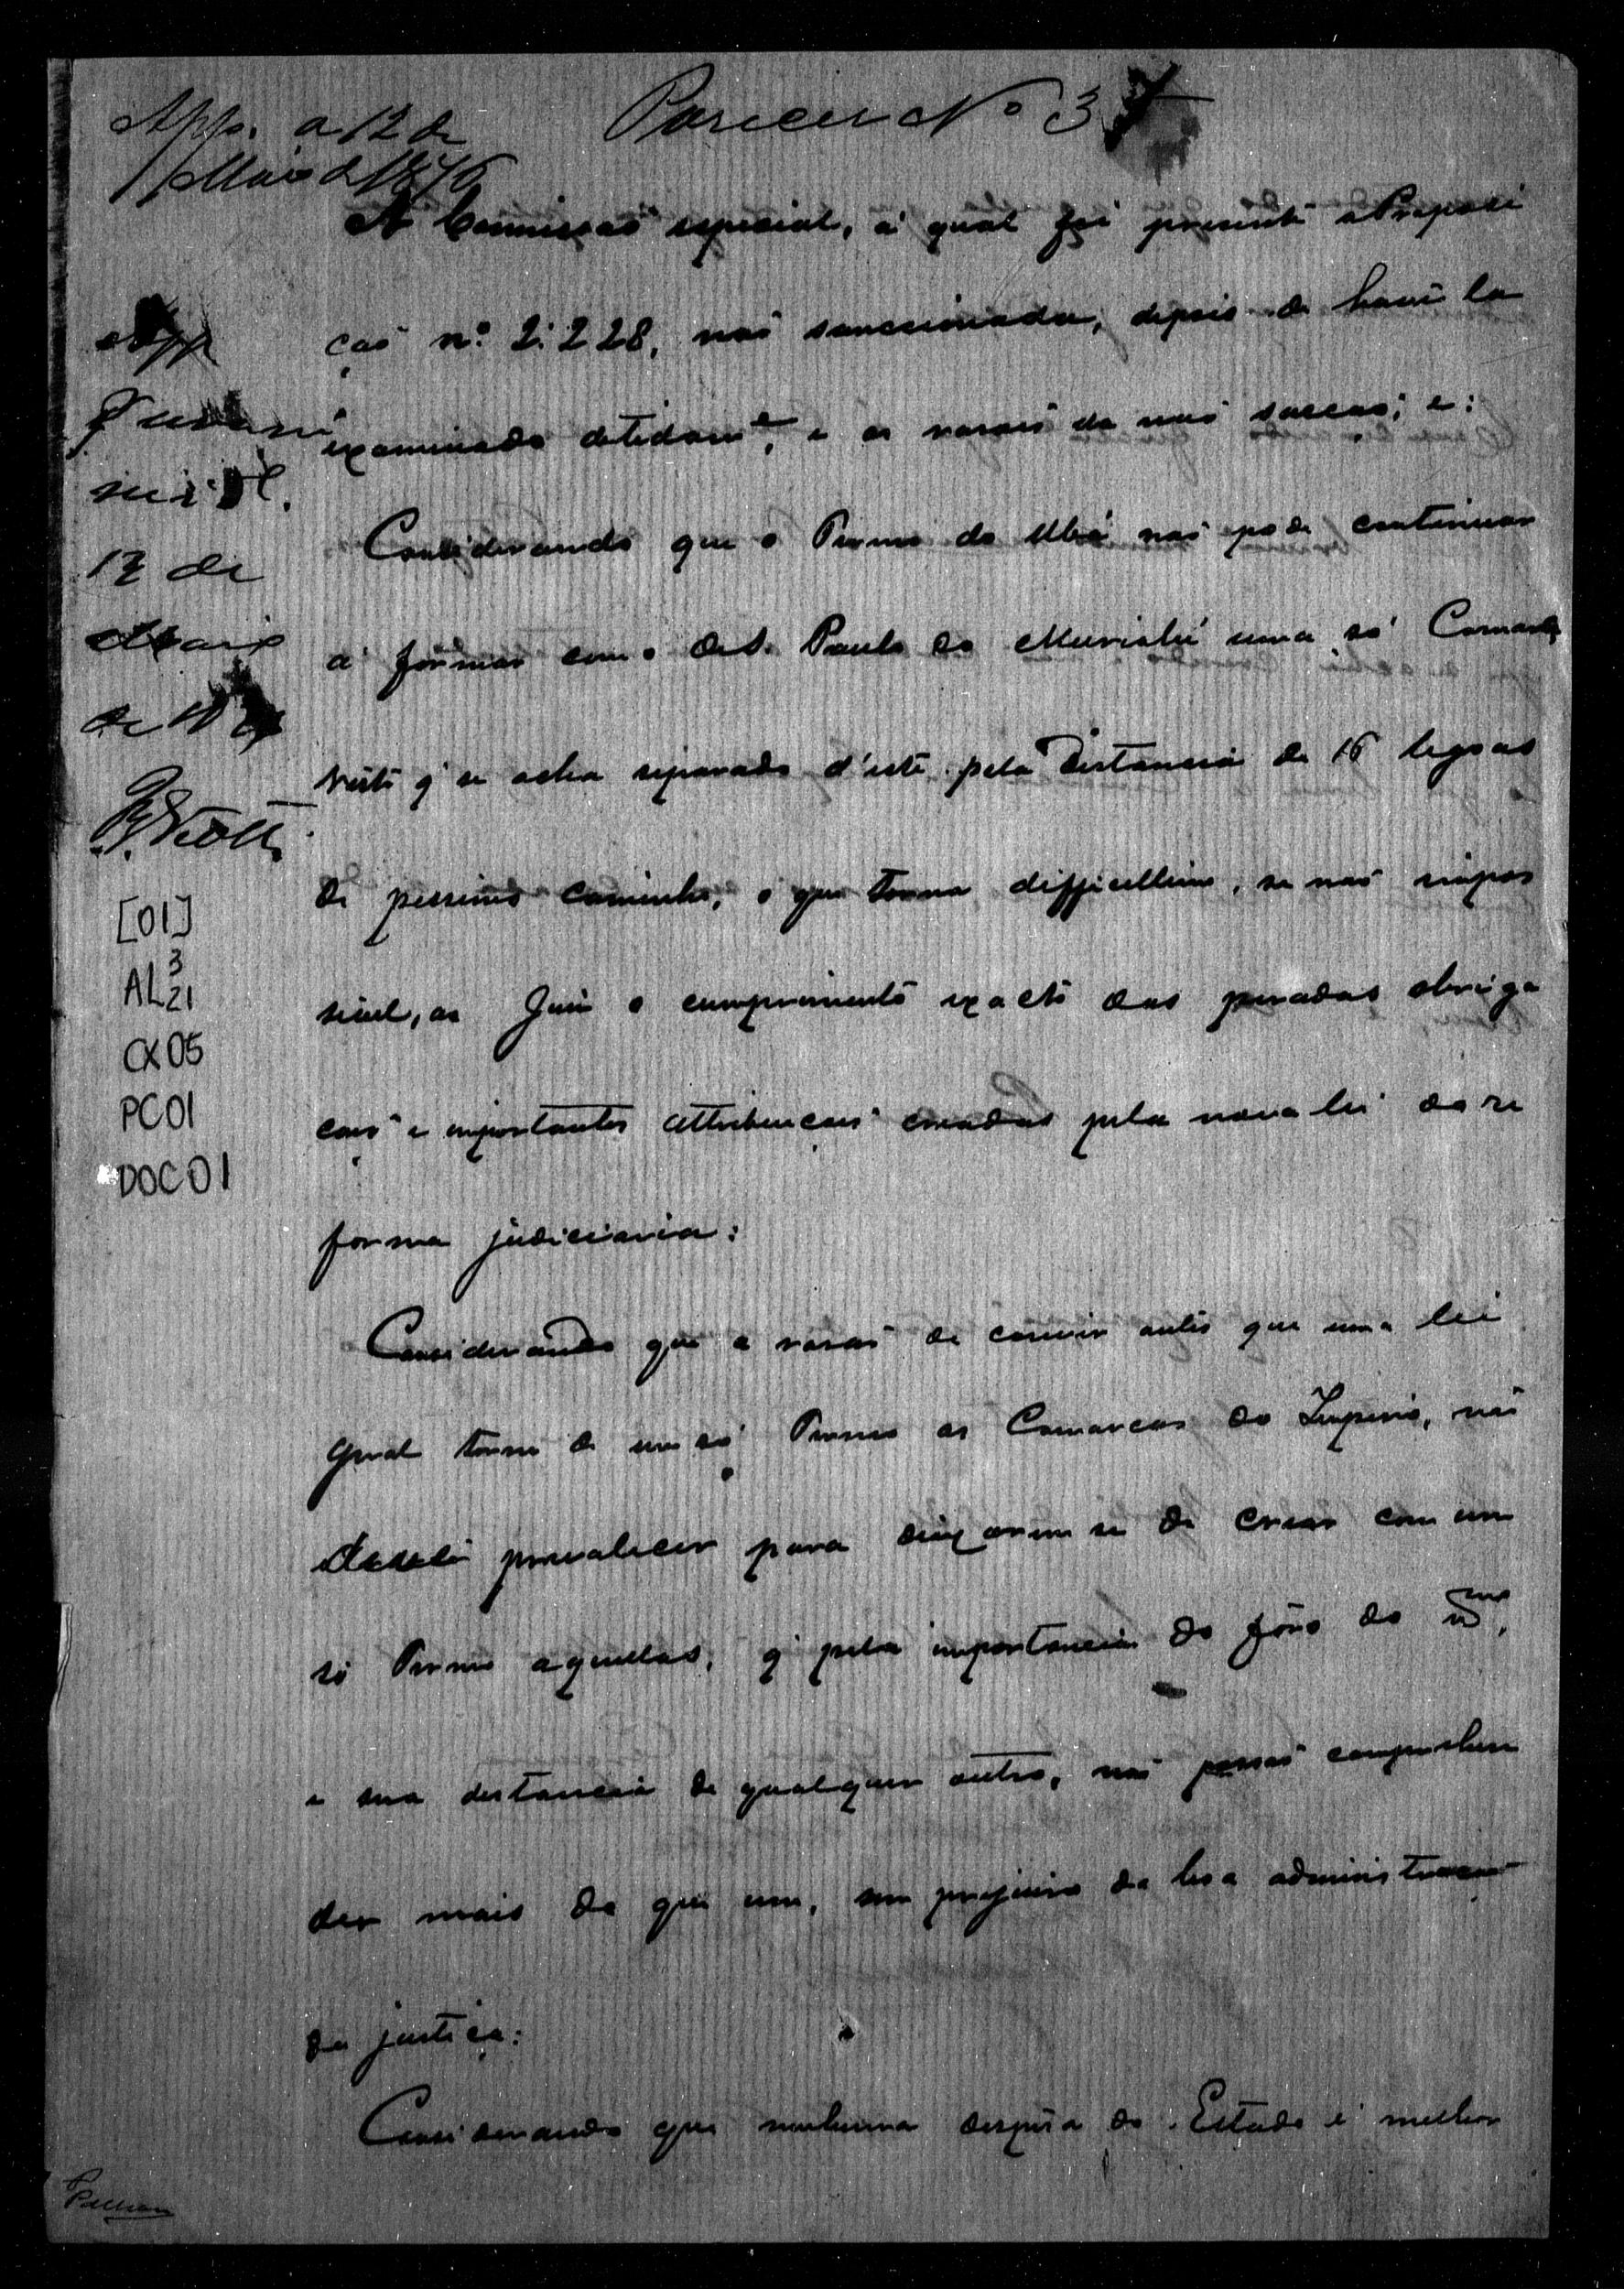 Parecer Nº 3
App. a 12 de
Maio de 1876
A Commissaõ especial, á qual foi presente a Proposi
çaõ nº 2:228, naõ sanccionada, depois de havê la
examinado detidamᵉ, e as rasoẽs da naõ sancçaõ; e:
Considerando que o Termo do Ubá naõ pode continuar
a formar com o de S. Paulo do Muriahé uma só Comarca
visto q' se acha separado d'este pela distancia de 16 legoas
de pessimo caminho, o que torna difficillimo, se naõ impos
sivel, ao Juiz o cumprimento exacto das pesadas obriga
coẽs e importantes attribuiçoẽs creadas pela nova lei da re
forma judiciaria:
Considerando que a rasaõ de convir antes que uma lei
geral torne de um só Termo as Comarcas do Imperio, naõ
prevalecer para deixarem se de crear com um
só Termo aquellas, q' pela importancia do fôro do mᵐᵒ,
e sua distancia de qualquer outro, naõ possaõ comprehen
der mais do que um, sem prejuiso da boa administraçaõ
da justiça:
Considerando que nenhuma despesa do Estado é melhor
12 de
Maio
de
[01]
AL 3
21
CX05
PC01
DOC01